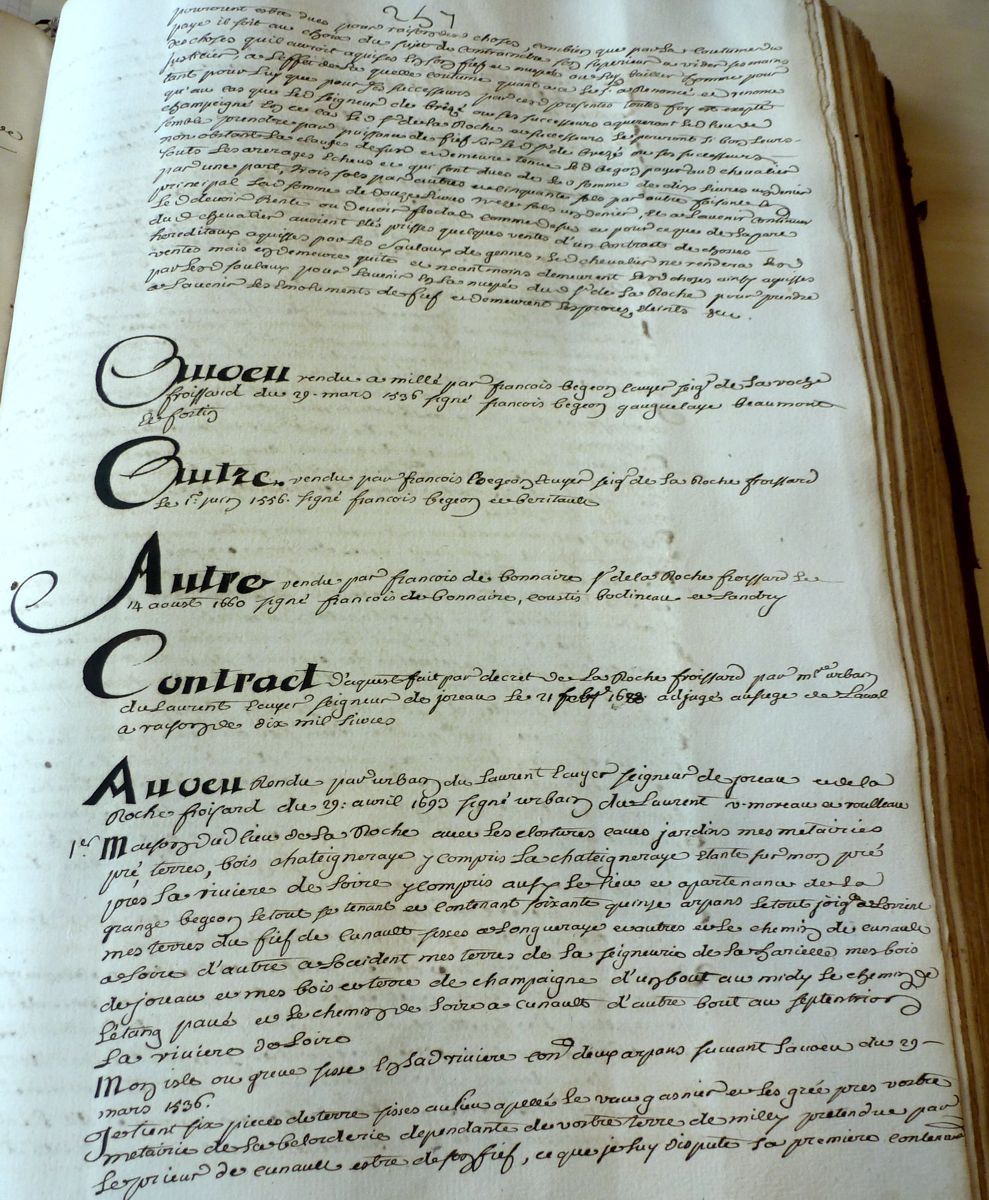 257
pourroient estre dues pour raison des choses, combien que par la coutume du
paye il soit au choix du sujet de contraindre son superieur a vider ses mains
des choses quil auroit aquises en son fief et nuepce ou luy bailler homme pour
justicier a leffet de la quelle coutume quant a ce led. sr. a Renoncé et renonce
tant pour luy que pour ses successeurs par ces presentes toutes foy est excepté
qu'au cas que led seigneur de brezé ou ses successeurs aquereront led lieu de
champeigné en ce cas le d sr. de la Roche ou successeurs le pourront si bon leurs
semble prendre par puissance de fief sur le d sr. de Brezé ou ses successeurs
non obstant la clause desus et demeure tenu led begon payer aud chevalier
touts les arerages echeus et qui sont dues de la somme de dix livres un denier
par une part, trois sols par autres et cinquante sols par autre faisant la
principal la somme de douze livres treze sols un denier, et a l'avenir continuer
le d devoir Rente ou devoir feodale comme desus et pour ce que de la part
dud chevalier avoient eté prisses quelques ventes d'un contrats de choses
hereditaux aquisses par les saulaux de gennes, led chevalier ne rendera lesd
ventes mais en demeure quite et neantmoins demeurent lesd choses ainsy aquisses
par lesd saulaux pour lavenir en la nuepce du d sr. de la Roche pour prendre
a lavenir les emoluments de fief et demeurent les proces eteints &c.
Auveu rendu a millé par francois begeon Ecuyer seigr. de la roche
froissard du 29. mars 1536 signé francois begeon gauguelaye beaumont
et fortin
Autre. rendu par francois Begeon Ecuyer seigr. de la Roche froissard
le 1er. juin 1556. signé francois begeon et beritault
Autre rendu par francois de bonnaire sr. de la Roche froissard le
14 aoust 1660 signé francois de bonnaire, coustis bodineau et Landry
Contract d'aquest fait par decret de la Roche froissard par mre. urban
du Laurent Ecuyer seigneur de joreau le 21 febr. 1688 adjugé au siege de Laval
a raison de dix mil livres
Auveu Rendu par urban du Laurent Ecuyer seigneur de joreau et de la
Roche froisard du 29: avril 1693 signé urban du Laurent v. moreau et roulleau
1er. Maison dud lieu de la Roche avec les clostures caves jardins mes metairies
pré terres, bois chateigneraye y compris la chateigneraye etante sur mon pré
pres la riviere de Loire y compris aussy le lieu et apartenance de la
grange begeon le tout se tenant et contenant soixante quinze arpans le tout joigt. a Lorient
mes terres du fief de cunault sisses a Longueraye et autres et le chemin de cunault
a Loire d'autre a locident mes terres de la seigneurie de la harielle mes bois
de joreau et mes bois et terre de champaigne d'un bout au midy le chemin de
Létang pavé et le chemin de Loire a cunault d'autre bout au septentrion
La riviere de Loire
Mon isle ou greve sisse en lad riviere cont. deux arpans suivant laveu du 29
mars 1536.
Je tient six pieces de terre sisses au lieu apellé le vau gasnier et les grée pres vostre
metairie de la belorderie dependante de vostre terre de milly pretendue par
le prieur de cunault estre de son fief, ce que je luy dispute la premiere contenant